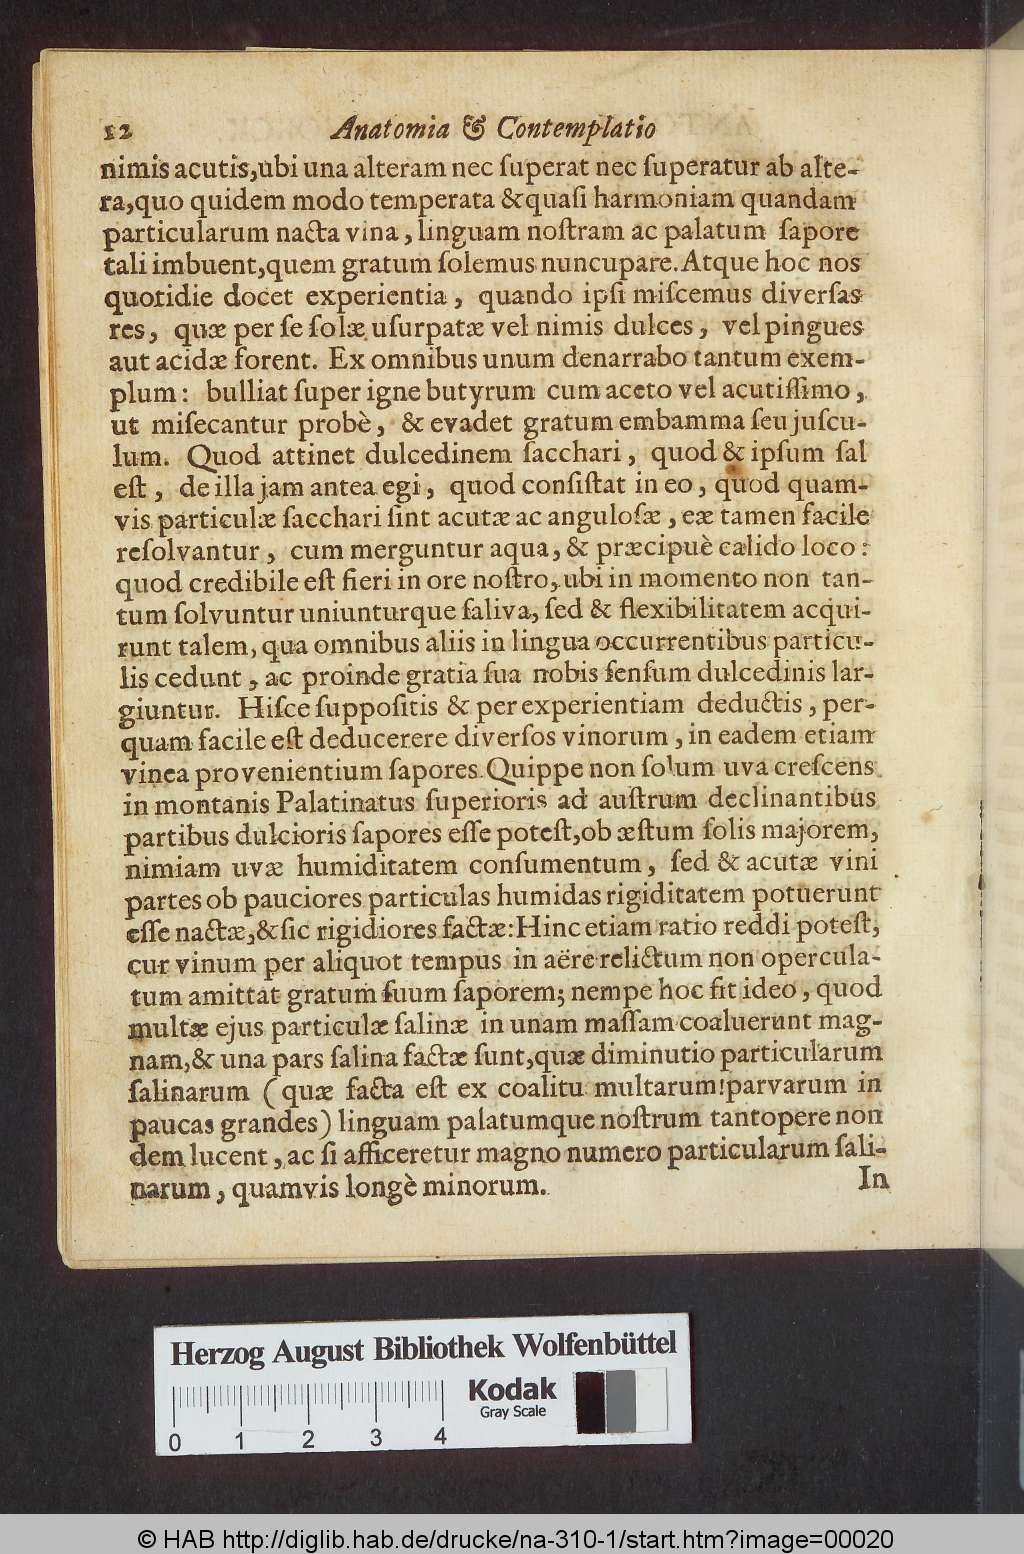 12 Anatomia & Contemplatio
nimis acutis,ubi una alteram nec ſuperat nec ſuperatur ab alte-
ra,quo quidem modo temperata &quaſi harmoniam quandam
particularum nacta vina, linguam noſtram ac palatum ſapore
tali imbuent,quem gratum ſolemus nuncupare.Atque hoc nos
quotidie docet experientia, quando ipſi miſcemus diverſas
res, quæ per ſe ſolæ uſurpatæ vel nimis dulces, vel pingues
aut acidæ forent. Ex omnibus unum denarrabo tantum exem-
plum: bulliat ſuper igne butyrum cum aceto vel acutiſſimo,
ut miſecantur probè, & evadet gratum embamma ſeu juſcu-
lum. Quod attinet dulcedinem ſacchari, quod & ipſum ſal
eſt, de illa jam antea egi, quod conſiſtat in eo, quod quam-
vis particulæ ſacchari ſint acutæ ac anguloſæ, eæ tamen facile
reſolvantur, cum merguntur aqua, & præcipuè calido loco:
quod credibile eſt fieri in ore noſtro, ubi in momento non tan-
tum ſolvuntur uniunturque ſaliva, ſed & flexibilitatem acqui-
runt talem, qua omnibus aliis in lingua occurrentibus particu-
lis cedunt, ac proinde gratia ſua nobis ſenſum dulcedinis lar-
giuntur. Hiſce ſuppoſitis & per experientiam deductis, per-
quam facile eſt deducerere diverſos vinorum, in eadem etiam
vinea provenientium ſapores. Quippe non ſolum uva creſcens
in montanis Palatinatus ſuperioris ad auſtrum declinantibus
partibus dulcioris ſapores eſſe poteſt,ob æſtum ſolis majorem,
nimiam uvæ humiditatem conſumentum, ſed & acutæ vini
partes ob pauciores particulas humidas rigiditatem potuerunt
eſſe nactæ,&ſic rigidiores factæ:Hinc etiam ratio reddi poteſt,
cur vinum per aliquot tempus in aëre relictum non opercula-
tum amittat gratum ſuum ſaporem; nempe hoc fit ideo, quod
multæ ejus particulæ ſalinæ in unam maſſam coaluerunt mag-
nam,& una pars ſalina factæ ſunt,quæ diminutio particularum
ſalinarum (quæ facta eſt ex coalitu multarum!parvarum in
paucas grandes) linguam palatumque noſtrum tantopere non
demlucent, ac ſi afficeretur magno numero particularum ſali-
narum, quamvis longè minorum.
In
Herzog August Bibliothek Wolfenbüttel
Kodak
Gray Scale
0 1 2 3 4
© HAB http://diglib.hab.de/drucke/na-310-1/start.htm?image=00020